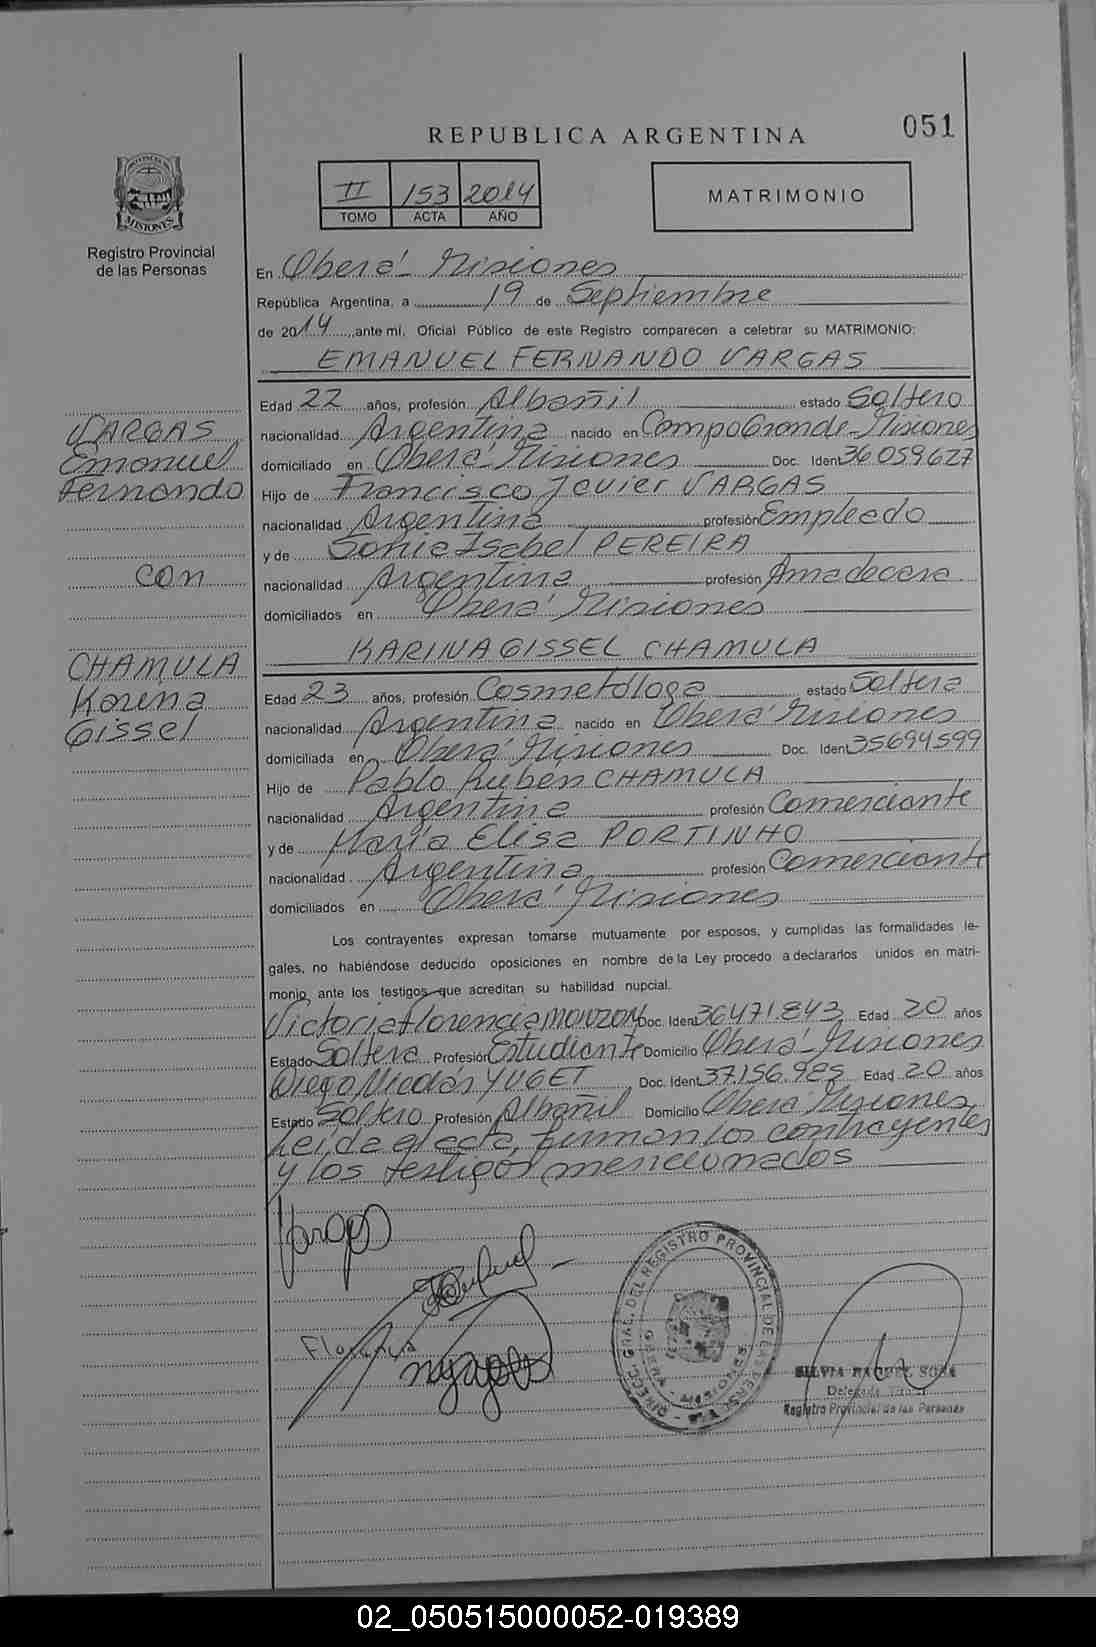 051
REPUBLICA ARGENTINA
II 153 2014
TOMO ACTA AÑO
MATRIMONIO
PROVINCIA DE
MISIONES
Registro Provincial
de las Personas
En Oberá - Misiones
República Argentina, a 19 de Septiembre
de 2014, ante mí, Oficial Público de este Registro comparecen a celebrar su MATRIMONIO:
EMANUEL FERNANDO VARGAS
Edad 22 años, profesión Albañil estado Soltero
nacionalidad Argentina nacido en Campo Grande - Misiones
domiciliado en Oberá - Misiones Doc. Ident 36059627
Hijo de Francisco Javier VARGAS
nacionalidad Argentina profesión Empleado
y de Sonia Isabel PEREIRA
nacionalidad Argentina profesión Ama de casa
domiciliados en Oberá Misiones
VARGAS
Emanuel
Fernando
con
CHAMULA
Karina
Gissel
KARINA GISSEL CHAMULA
Edad 23 años, profesión Cosmetóloga estado Soltera
nacionalidad Argentina nacido en Oberá Misiones
domiciliada en Oberá Misiones Doc. Ident 35694599
Hijo de Pablo Ruben CHAMULA
nacionalidad Argentina profesión Comerciante
y de María Elisa PORTINHO
nacionalidad Argentina profesión Comerciante
domiciliados en Oberá Misiones
Los contrayentes expresan tomarse mutuamente por esposos, y cumplidas las formalidades le-
gales, no habiéndose deducido oposiciones en nombre de la Ley procedo a declararlos unidos en matri-
monio, ante los testigos que acreditan su habilidad nupcial.
Victoria Florencia MONZON Doc. Ident 36471.843 Edad 20 años
Estado Soltera Profesión Estudiante Domicilio Oberá - Misiones
Diego Nicolás YUGET Doc. Ident 37.156.985 Edad 20 años
Estado Soltero Profesión Albañil Domicilio Oberá Misiones
Leída el acta, firman los contrayentes
y los testigos mencionados
Vargas
Florencia
DIRECC. GRAL. DEL REGISTRO PROVINCIAL DE LAS PERSONAS
OBERA - MISIONES
SILVIA RAQUEL SOSA
Delegada Titular
Registro Provincial de las Personas
02_050515000052-019389